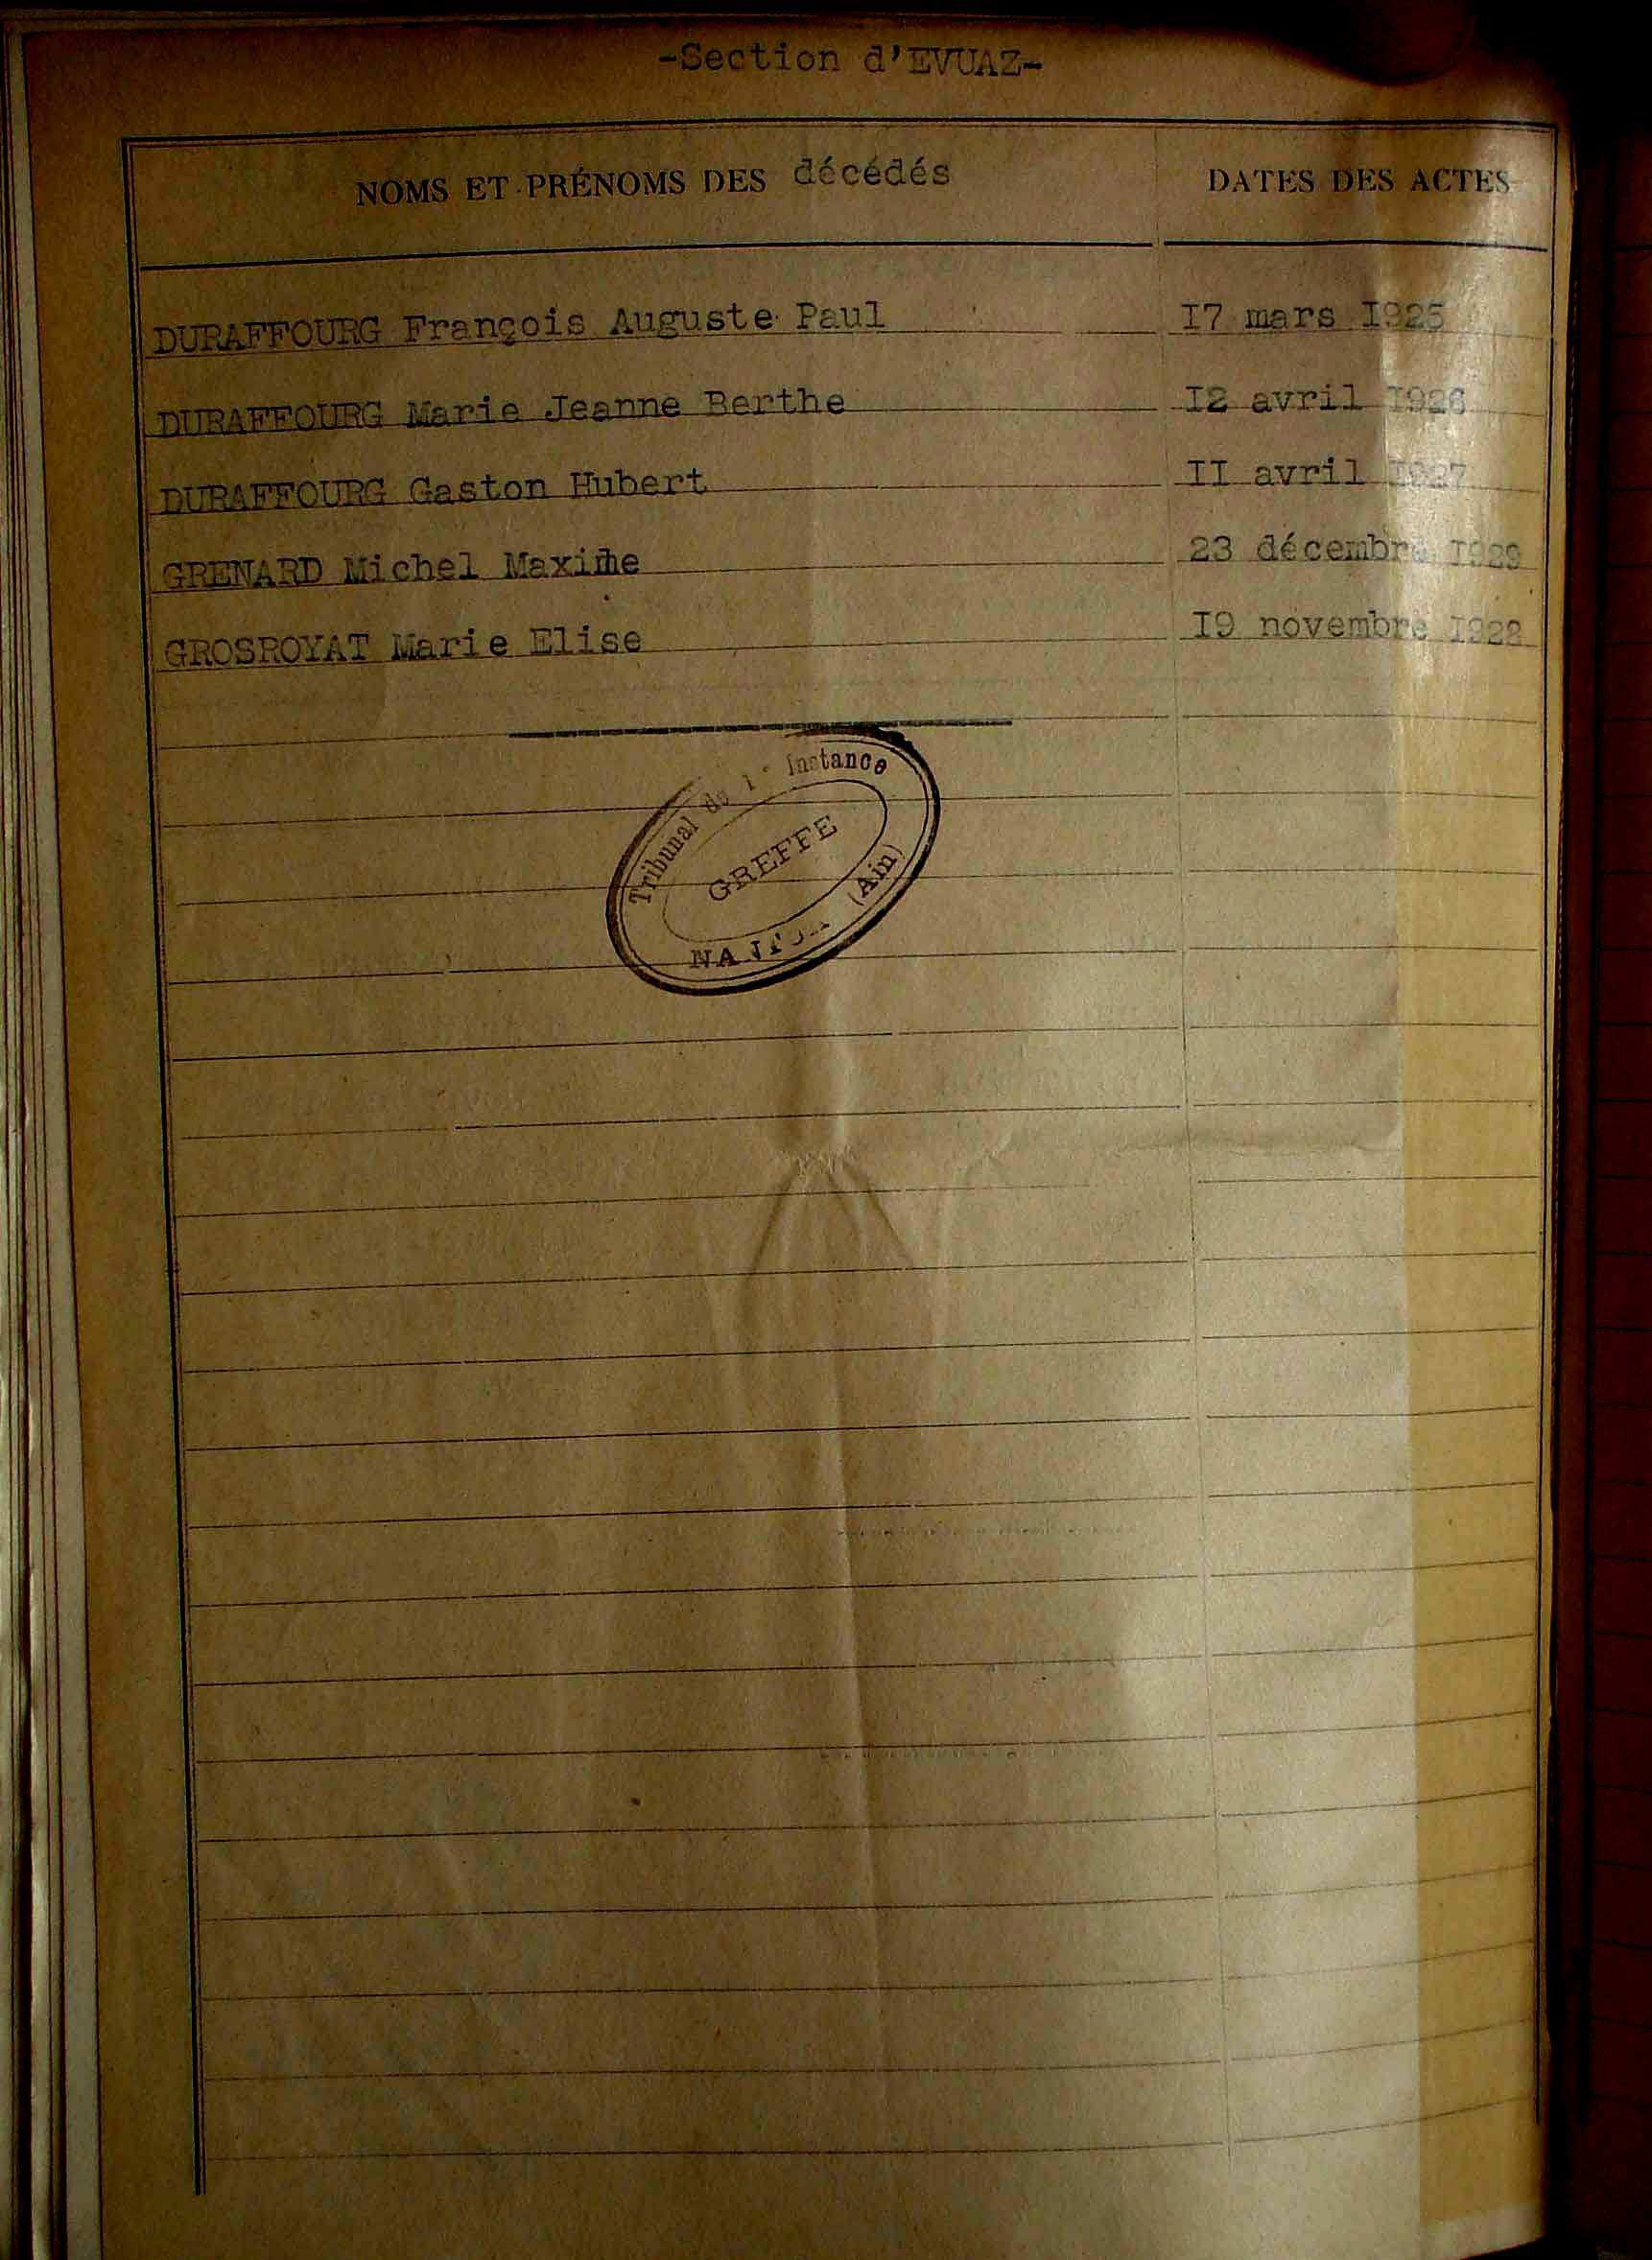 -Section d'EVUAZ-
NOMS ET PRÉNOMS DES décédés DATES DES ACTES
DURAFFOURG François Auguste Paul I7 mars I925
DURAFFOURG Marie Jeanne Berthe I2 avril I926
DURAFFOURG Gaston Hubert II avril I927
GRENARD Michel Maxime 23 décembre I929
GROSROYAT Marie Elise I9 novembre
Tribunal de 1e Instance
GREFFE
(Ain)